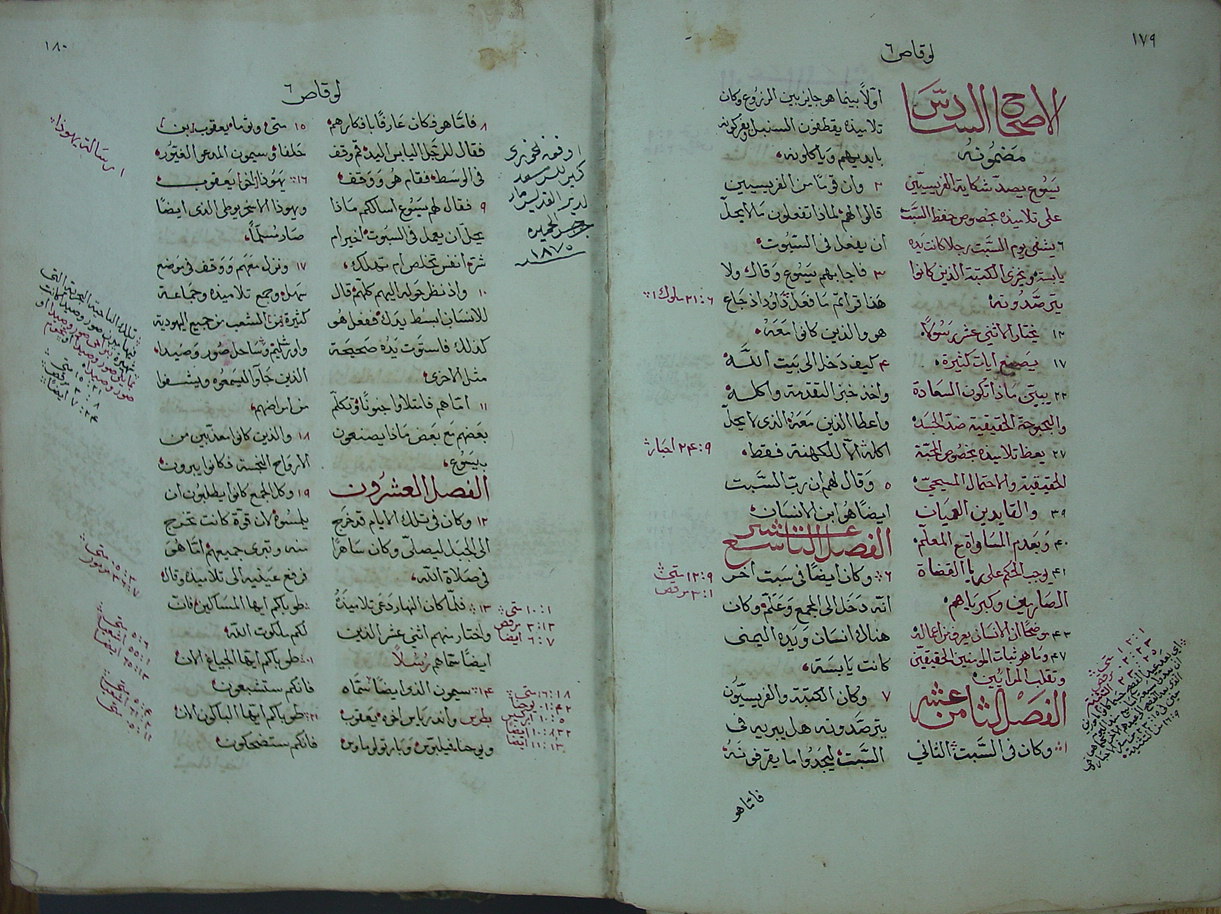 ١٧٩
لوقاص ٦
الاصحاح السادس
مضمونه
يسوع يصد شكاية الفريسيين
على تلاميذه بخصوص حفظ السبت
٦ يشفي يوم السبت رجلا كانت يده
يابسة ويخزي الكتبة الذين كانوا
يترصدونه
١٢ يختار الاثني عشر رسولاً
١٧ يصنع ايات كثيرة
٢٢ يبين ماذا تكون السعادة
الحقيقية ضد الجسد
٢٧ يعظ تلاميذه بخصوص المحبة
الحقيقية والاحتمال المسيحي
٣٩ والقايدين العميان
٤٠ وبعدم المساواة مع المعلم
٤١ وجب الحكم على ريا القضاة
الصارمين وكبرياهم
٤٣ الانسان يعرف من اعماله
٤٧ وما هو ثبات المومنين الحقيقيين
وتقلب المرايين
الفصل الثامن عشر
١ وكان في السبت الثاني
اولاً بينما هو جايز بين الزروع وكان
تلاميذه يقطعون السنبل ويفركونه
بايديهم وياكلونه
٢ وان قوماً من الفريسيين
قالوا لهم لماذا تفعلون ما لا يحل
ان يفعل في السبوت
٣ فاجابهم يسوع وقال ولا
هذا قراتم ما فعل داود اذ جاع
هو والذين كانوا معه
٤ كيف دخل الى بيت الله
واخذ خبز التقدمة واكله
واعطا الذين معه الذي لا يحل
اكله الا للكهنة فقط
٥ وقال لهم ان رب السبت
ايضاً هو ابن الانسان
الفصل التاسع عشر
٦ وكان ايضاً في سبت اخر
انه دخل الى المجمع وعلم وكان
هناك انسان ويده اليمنى
كانت يابسة
٧ وكان الكتبة والفريسيون
يترصدونه هل يبريه في
السبت ليجدوا ما يقرفونه
فاما هو
٦:٢١ ملوك ١
٩:٢٤ احبار
٩:١٢ متى
١:٣ مرقص
١٨٠
لوقاص ٦
٨ فاما هو فكان عارفاً بافكارهم
فقال للرجل اليابس اليد قم وقف
في الوسط فقام هو ووقف
٩ فقال لهم يسوع اسالكم ماذا
يحل ان يعمل في السبوت اخير ام
شر انفس تخلص ام تهلك
١٠ واذ نظر حوله اليهم كلهم قال
للانسان ابسط يدك ففعل هو
كذلك فاستوت يده صحيحة
مثل الاخرى
١١ اما هم فامتلاوا جنوناً وتكلم
بعضهم مع بعض ماذا يصنعون
بيسوع
الفصل العشرون
١٢ وكان في تلك الايام قد خرج
الى الجبل ليصلي وكان ساهراً
في صلاة الله
١٣ فلما كان النهار دعى تلاميذه
واختار منهم اثني عشر الذين
ايضاً سماهم رسلاً
١٤ سيمون الذي ايضاً سماه
بطرس واندرياس اخوه يعقوب
ويوحنا فيلبوس وبارتولوماوس
١٥ متى وتوما يعقوب ابن
حلفا وسيمون المدعو الغيور
١٦ يهوذا اخو يعقوب
ويهوذا الاسخريوطي الذي ايضاً
صار مسلماً
١٧ ونزل معهم ووقف في موضع
سهل وجمع تلاميذه وجماعة
كثيرة من الشعب من جميع اليهودية
واورشليم وساحل صور وصيدا
الذين جآوا ليسمعوه ويشفوا
من امراضهم
١٨ والذين كانوا معذبين من
الارواح النجسة فكانوا يبرون
١٩ وكل الجمع كانوا يطلبون ان
يلمسوه لان قوة كانت تخرج
منه وتبري جميعهم
فرفع عينيه الى تلاميذه وقال
طوباكم ايها المساكين فان
لكم ملكوت الله
٢١ طوباكم ايها الجياع الان
فانكم ستشبعون
طوباكم ايها الباكون الان
فانكم ستضحكون
١ رسالة يهوذا
١٨٧٥